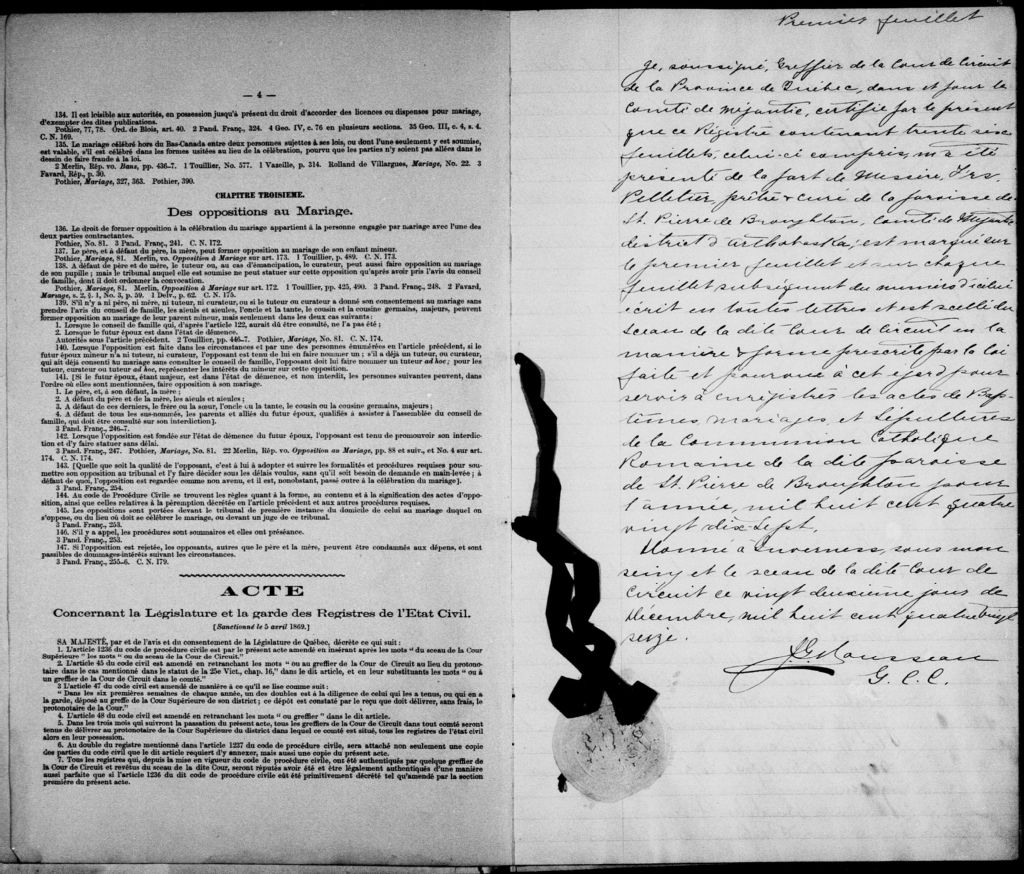 — 4 —
134. Il est loisible aux autorités, en possession jusqu'à présent du droit d'accorder des licences ou dispenses pour mariage,
d'exempter des dites publications.
Pothier, 77, 78. Ord. de Blois, art. 40. 2 Pand. Franç., 324. 4 Geo. IV, c. 76 en plusieurs sections. 35 Geo. III, c. 4, s. 4.
C. N. 169.
135. Le mariage célébré hors du Bas-Canada entre deux personnes sujettes à ses lois, ou dont l'une seulement y est soumise,
est valable, s'il est célébré dans les formes usitées au lieu de la célébration, pourvu que les parties n'y soient pas allées dans le
dessin de faire fraude à la loi.
2 Merlin, Rép. vo. Bans, pp. 436-7. 1 Touillier, No. 577. 1 Vazeille, p. 314. Rolland de Villargues, Mariage, No. 22. 3
Favard, Rép., p. 30.
Pothier, Mariage, 327, 363. Pothier, 390.
CHAPITRE TROISIEME.
Des oppositions au Mariage.
136. Le droit de former opposition à la célébration du mariage appartient à la personne engagée par mariage avec l'une des
deux parties contractantes.
Pothier, No. 81. 3 Pand. Franç., 241. C. N. 172.
137. Le père, et à défaut du père, la mère, peut former opposition au mariage de son enfant mineur.
Pothier, Mariage, 81. Merlin, vo. Opposition à Mariage sur art. 173. 1 Touillier, p. 489. C. N. 173.
138. A défaut de père et de mère, le tuteur ou, au cas d'émancipation, le curateur, peut aussi faire opposition au mariage
de son pupille ; mais le tribunal auquel elle est soumise ne peut statuer sur cette opposition qu'après avoir pris l'avis du conseil
de famille, dont il doit ordonner la convocation.
Pothier, Mariage, 81. Merlin, Opposition à Mariage sur art. 172. 1 Touillier, pp. 425, 490. 3 Pand. Franç., 248. 2 Favard,
Mariage, s. 2, §. 1, No. 3, p. 59. 1 Delv., p. 62. C. N. 175.
139. S'il n'y a ni père, ni mère, ni tuteur, ni curateur, ou si le tuteur ou curateur a donné son consentement au mariage sans
prendre l'avis du conseil de famille, les aïeuls et aïeules, l'oncle et la tante, le cousin et la cousine germains, majeurs, peuvent
former opposition au mariage de leur parent mineur, mais seulement dans les deux cas suivants :
1. Lorsque le conseil de famille qui, d'après l'article 122, aurait dû être consulté, ne l'a pas été ;
2. Lorsque le futur époux est dans l'état de démence.
Autorités sous l'article précédent. 2 Touillier, pp. 446-7. Pothier, Mariage, No. 81. C. N. 174.
140. Lorsque l'opposition est faite dans les circonstances et par une des personnes énumérées en l'article précédent, si le
futur époux mineur n'a ni tuteur, ni curateur, l'opposant est tenu de lui en faire nommer un ; s'il a déjà un tuteur, ou curateur,
qui ait déjà consenti au mariage sans consulter le conseil de famille, l'opposant doit lui faire nommer un tuteur ad hoc ; pour les
tuteur, curateur ou tuteur ad hoc, représenter les intérêts du mineur sur cette opposition.
141. [Si le futur époux, étant majeur, est dans l'état de démence, et non interdit, les personnes suivantes peuvent, dans
l'ordre où elles sont mentionnées, faire opposition à son mariage.
1. Le père, et, à son défaut, la mère ;
2. A défaut du père et de la mère, les aieuls et aieules ;
3. A défaut de ces derniers, le frère ou la sœur, l'oncle ou la tante, le cousin ou la cousine germains, majeurs ;
4. A défaut de tous les sus-nommés, les parents et alliés du futur époux, qualifiés à assister à l'assemblée du conseil de
famille, qui doit être consulté sur son interdiction].
3 Pand. Franç., 246-7.
142. Lorsque l'opposition est fondée sur l'état de démence du futur époux, l'opposant est tenu de promouvoir son interdic-
tion et d'y faire statuer sans délai.
3 Pand. Franç., 247. Pothier, Mariage, No. 81. 22 Merlin, Rép. vo. Opposition au Mariage, pp. 88 et suiv., et No. 4 sur art.
174. C. N. 174.
143. [Quelle que soit la qualité de l'opposant, c'est à lui à adopter et suivre les formalités et procédures requises pour sou-
mettre son opposition au tribunal et l'y faire décider sous les délais voulus, sans qu'il soit besoin de demande en main-levée ; à
défaut de quoi, l'opposition est regardée comme non avenu, et il est, nonobstant, passé outre à la célébration du mariage].
3 Pand. Franç., 254.
144. Au code de Procédure Civile se trouvent les règles quant à la forme, au contenu et à la signification des actes d'oppo-
sition, ainsi que celles relatives à la péremption décrétée en l'article précédent et aux autres procédures requises.
145. Les oppositions sont portées devant le tribunal de première instance du domicile de celui au mariage duquel on
s'oppose, ou du lieu où doit se célébrer le mariage, ou devant un juge de ce tribunal.
3 Pand. Franç., 253.
146. S'il y a appel, les procédures sont sommaires et elles ont préséance.
3 Pand. Franç., 253.
147. Si l'opposition est rejetée, les opposants, autres que le père et la mère, peuvent être condamnés aux dépens, et sont
passibles de dommages-intérêts suivant les circonstances.
3 Pand. Franç., 255-6. C. N. 179.
ACTE
Concernant la Législature et la garde des Registres de l'Etat Civil.
[Sanctionné le 5 avril 1869.]
SA MAJESTÉ, par et de l'avis et du consentement de la Législature de Québec, décrète ce qui suit :
1. L'article 1236 du code de procédure civile est par le présent acte amendé en insérant après les mots " du sceau de la Cour
Supérieure " les mots " ou du sceau de la Cour de Circuit."
2. L'article 45 du code civil est amendé en retranchant les mots " ou au greffier de la Cour de Circuit au lieu du protono-
taire dans le cas mentionné dans le statut de la 25e Vict., chap. 16," dans le dit article, et en leur substituants les mots " ou à
un greffier de la Cour de Circuit dans le comté."
3 L'article 47 du code civil est amendé de manière à ce qu'il se lise comme suit :
" Dans les six premières semaines de chaque année, un des doubles est à la diligence de celui qui les a tenus, ou qui en a
la garde, déposé au greffe de la Cour Supérieure de son district ; ce dépôt est constaté par le reçu que doit délivrer, sans frais, le
protonotaire de la Cour."
4. L'article 48 du code civil est amendé en retranchant les mots " ou greffier " dans le dit article.
5. Dans les trois mois qui suivront la passation du présent acte, tous les greffiers de la Cour de Circuit dans tout comté seront
tenus de délivrer au protonotaire de la Cour Supérieure du district dans lequel ce comté est situé, tous les registres de l'état civil
alors en leur possession.
6. Au double du registre mentionné dans l'article 1237 du code de procédure civile, sera attaché non seulement une copie
des parties du code civil que le dit article requiert d'y annexer, mais aussi une copie du présent acte.
7. Tous les registres qui, depuis la mise en vigueur du code de procédure civile, ont été authentiqués par quelque greffier de
la Cour de Circuit et revêtus du sceau de la dite Cour, seront réputés avoir été et être légalement authentiqués d'une manière
aussi parfaite que si l'article 1236 du dit code de procédure civile eût été primitivement décrété tel qu'amendé par la section
première du présent acte.
Premier feuillet
Je, soussigné, Greffier de la Cour de Circuit
de la Province de Québec, dans et pour le
Comté de Mégantic, certifie par le présent
que ce Régistre contenant trente six
feuillets, celui-ci compris, m'a été
présenté de la part de Messire, Frs.
Pelletier, prêtre & curé de la paroisse de
St. Pierre de Broughton, Comté de Mégantic
district d'Arthabaska, est marqué sur
le premier feuillet et sur chaque
feuillet subséquent du numéro d'icelui
écrit en toutes lettres et est scellé du
Sceau de la dite Cour de Circuit en la
manière & forme prescrite par la loi
faite et pourvue à cet égard pour
servir à enregistrer les actes de Bap-
têmes, mariages, et Sépultures
de la Communion Catholique
Romaine de la dite paroisse
de St. Pierre de Broughton pour
l'année, mil huit cent quatre
vingt dix-sept.
Donné à Inverness, sous mon
seing et le sceau de la dite Cour de
Circuit ce vingt deuxième jour de
Décembre, mil huit cent quatre vingt
seize.
Rousseau
G. C. C.